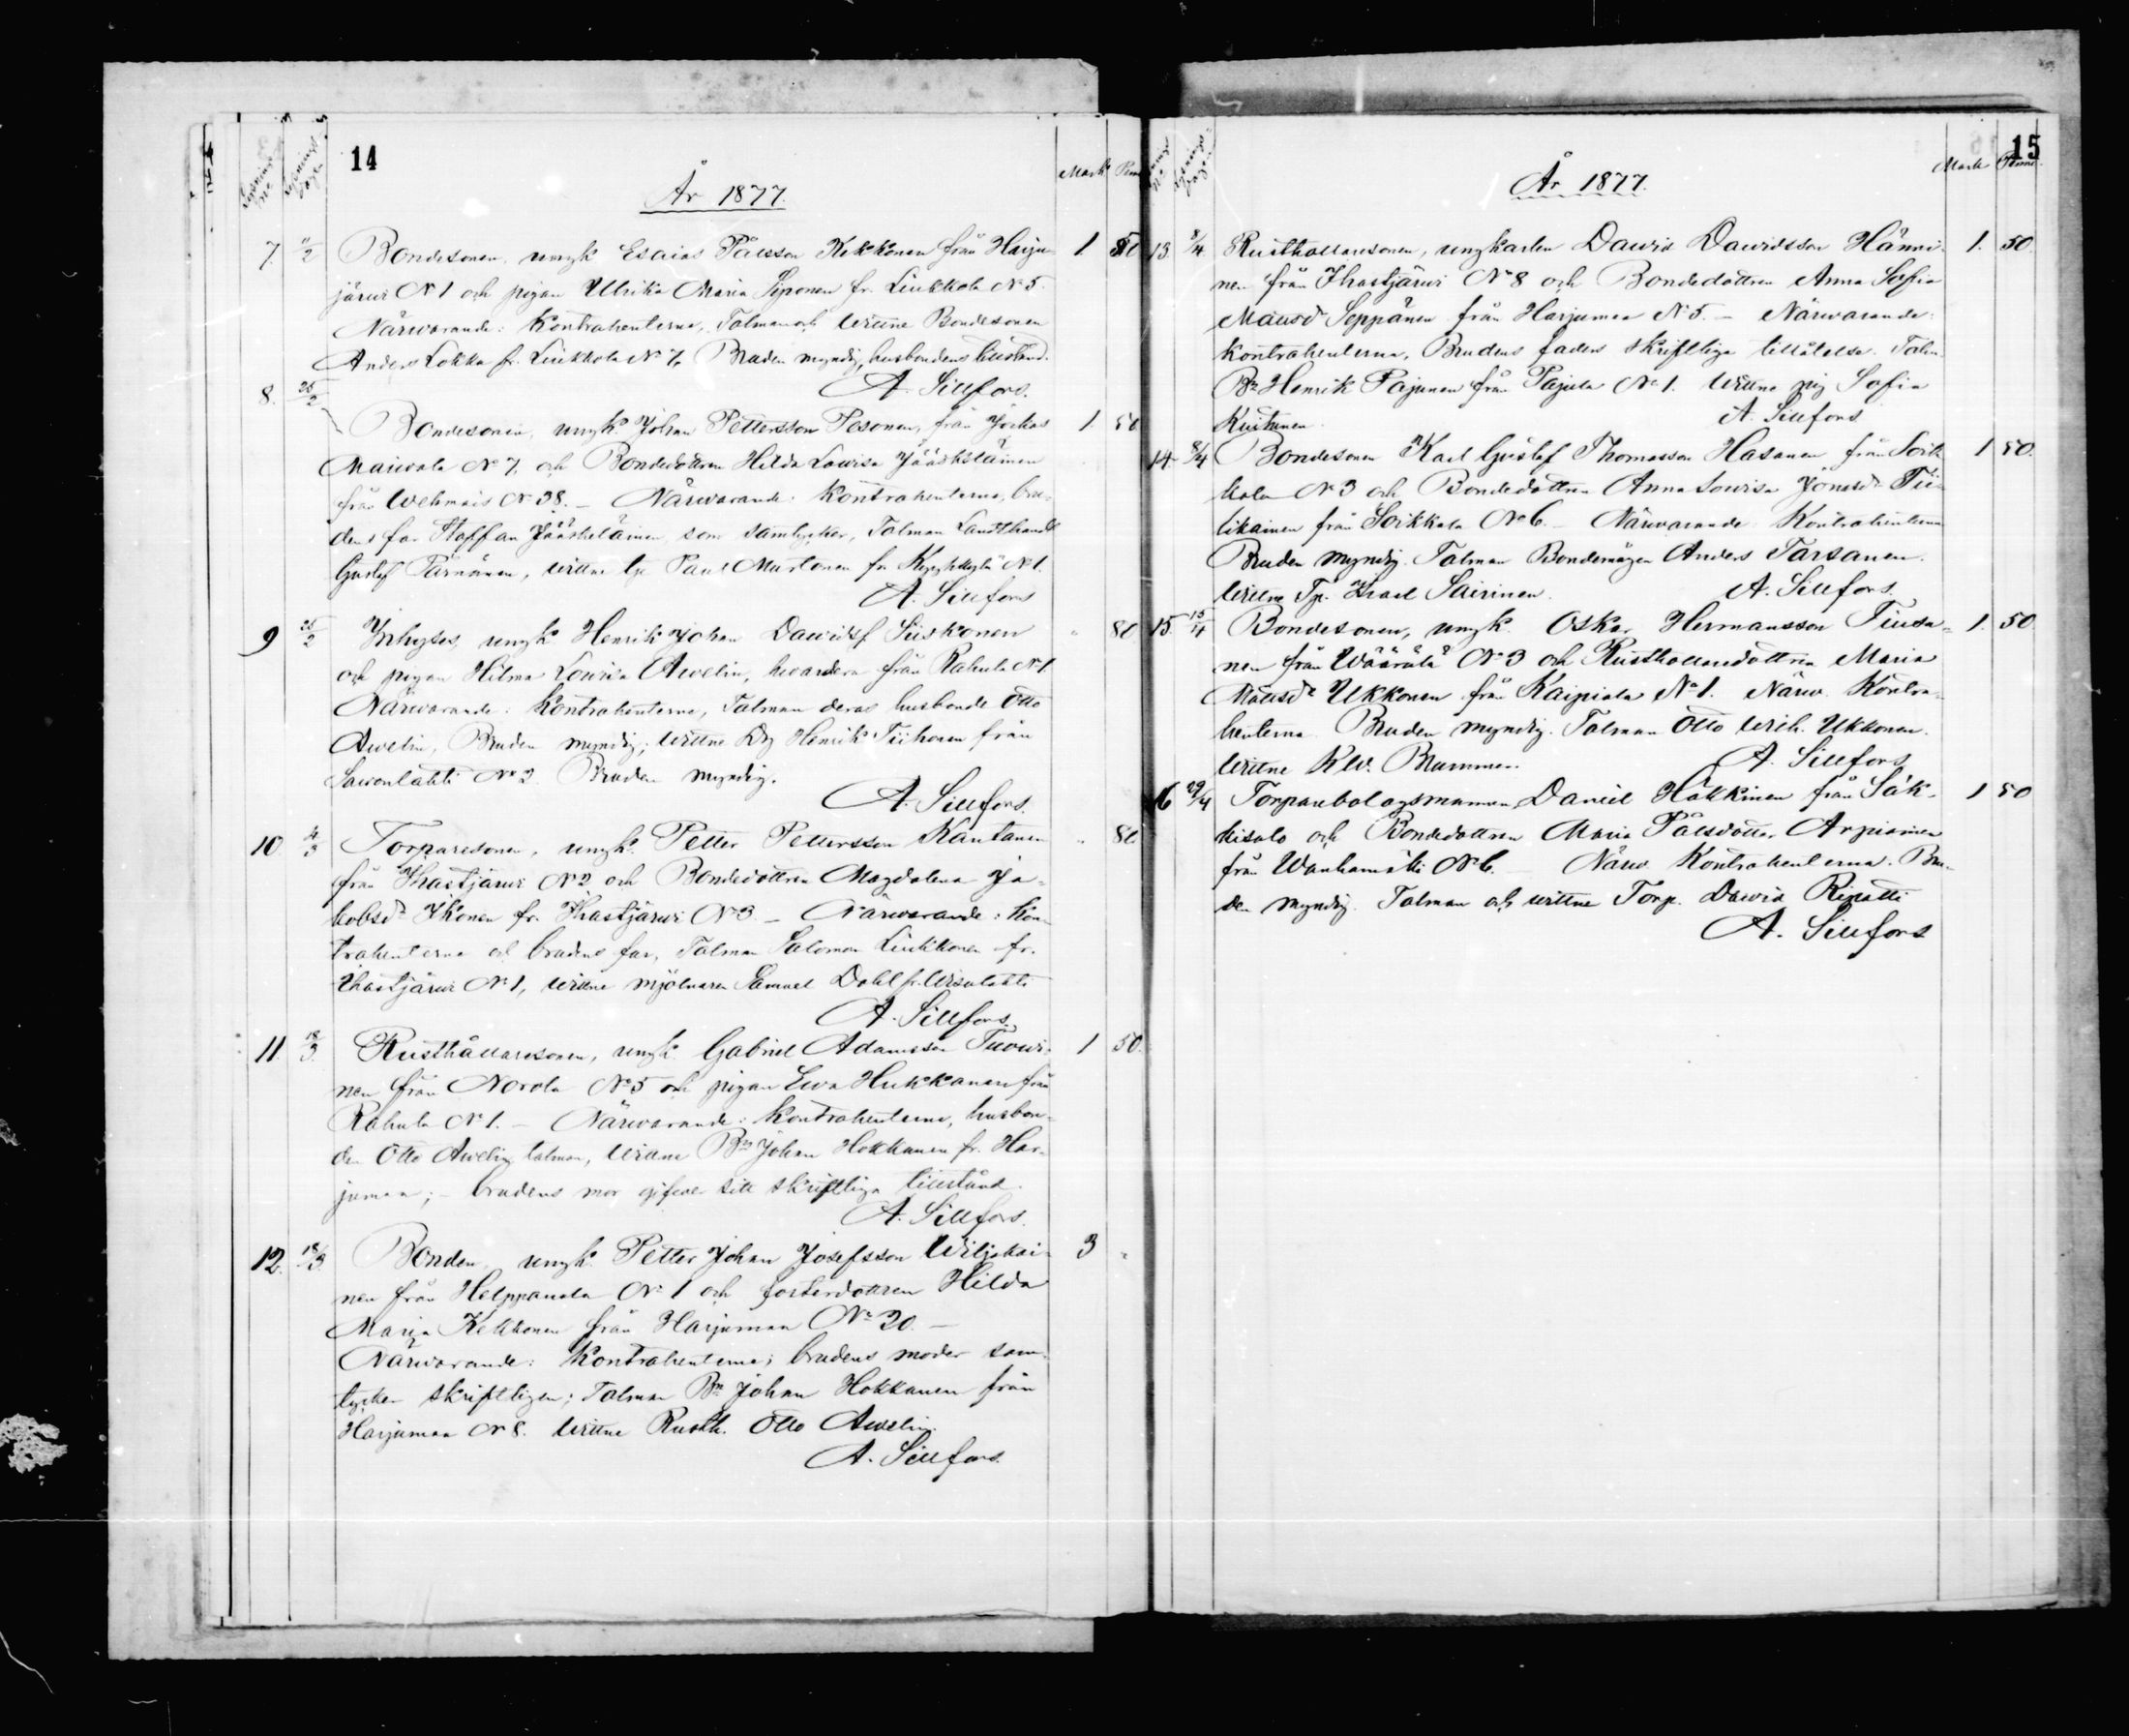 14
Lysnings No
Lysnings dagen
Mark
År 1877.
7. 11/2 Bondesonen, ungk Esaias Pålsson Kekkonen från Harju- 1. 50
järwi No 1 och pigan Ulrika Maria Piponen fr. Liukkola No 5.
Närwarande: Kontrahenterna, Talman och wittne Bondesonen
Anders Lokka fr. Liukkola No 7, Bruden myndig, husbondens tillstånd.
A. Sillfors.
8. 25/2
Bondesonen, ungk Johan Pettersson Pesonen, från Jockas 1. 50
Maiwala No 7, och Bondedottren Hilda Lowisa Jääskeläinen
från Wehmais No 38. – Närwarande: Kontrahenterna, bru-
dens far Staffan Jääskeläinen som samtycker, Talman Landthandl
Gustaf Pärnänen, wittne Paul Murtonen fr No 1.
A. Sillfors
9 25/2 Inhyses, ungk. Henrik Johan Dawidsf Siiskonen " 80
och pigan Hilma Lowisa Awelin, hwardera från Rahula No 1.
Närwarande: Kontrahenterna, Talman deras husbonde Otto
Awelin, Bruden myndig; wittne Drg Henrik Tiihonen från
Sawonlahti No 2. Bruden myndig.
A. Sillfors.
10 4/3 Torparesonen, ungk. Petter Pettersson Kautanen " 80
från Ihastjärwi No 2 och Bondedottren Magdalena Ja-
kobsdr Ikonen fr. Ihastjärwi No 3. – Närwarande: Kon-
trahenterna och brudens far, Talman Salomon Liukkonen fr.
Ihastjärwi No 1, wittne mjölnaren Samuel Dahl fr. Wisulahti
A. Sillfors.
11. 18/3. Rusthållaresonen, ungk. Gabriel Adamsson Tuowi- 1 50.
nen från Norola No 5 och pigan Ewa Hukkanen från
Rahula No 1. – Närwarande: Kontrahenterna, husbon-
den Otto Awelin talman, wittne Bn Johan Hokkanen fr. Har-
jumaa; – brudens mor gifwer sitt skriftliga tillstånd.
A. Sillfors.
12. 18/3. Bonden, ungk. Petter Johan Josefsson Wiljakai- 3 "
nen från Helppanala No 1 och fosterdottren Hilda
Maria Kekkonen från Harjumaa No 20. –
Närwarande: Kontrahenterna; brudens moder sam-
tycker skriftligen; Talman Bn Johan Hokkanen från
Harjumaa No 8. Wittne Rusth. Otto Awelin.
A. Sillfors.
15
Mark Penni
År 1877.
13. 8/4 Rusthållaresonen, ungkarlen Dawid Dawidsson Hänni- 1. 50.
nen från Ihastjärwi No 8 och Bondedottren Anna Sofia
Mattsdr Seppänen från Harjumaa No 5. – Närwarande:
Kontrahenterna, Brudens faders skriftliga tillåtelse. Talm.
Bn Henrik Pajunen från Pajula No 1. Wittne pig Sofia
Kuitunen. A. Sillfors
14. 8/4 Bondesonen Karl Gustaf Thomasson Hasanen från Soik- 1 50.
kala No 3 och Bondedottren Anna Lowisa Jönsdr Tii-
likainen från Soikkala No 6. – Närwarande Kontrahenterna
Bruden myndig. Talman Bondemågen Anders Tarsanen.
Wittne Tp. Israel Sairinen. A. Sillfors.
15. 15/4 Bondesonen, ungk. Oskar Hermansson Tiusa- 1. 50.
nen från Wäärälä No 3 och Rusthållaredottren Maria
Mattsdr Ukkonen från Kaipiala No 1. Närw. Kontra-
henterna. Bruden myndig. Talman Otto Wilh. Ukkonen.
Wittne Klv. Brummer. A. Sillfors
16 29/4 Torparebolagsmannen Daniel Häkkinen från Säk- 1 50
kisalo och Bondedottren Maria Pålsdotter Arpiainen
från Wanhamäki No 6. – Närw. Kontrahenterna. Bru-
den myndig. Talman och wittne Torp. Dawid Ripatti
A. Sillfors